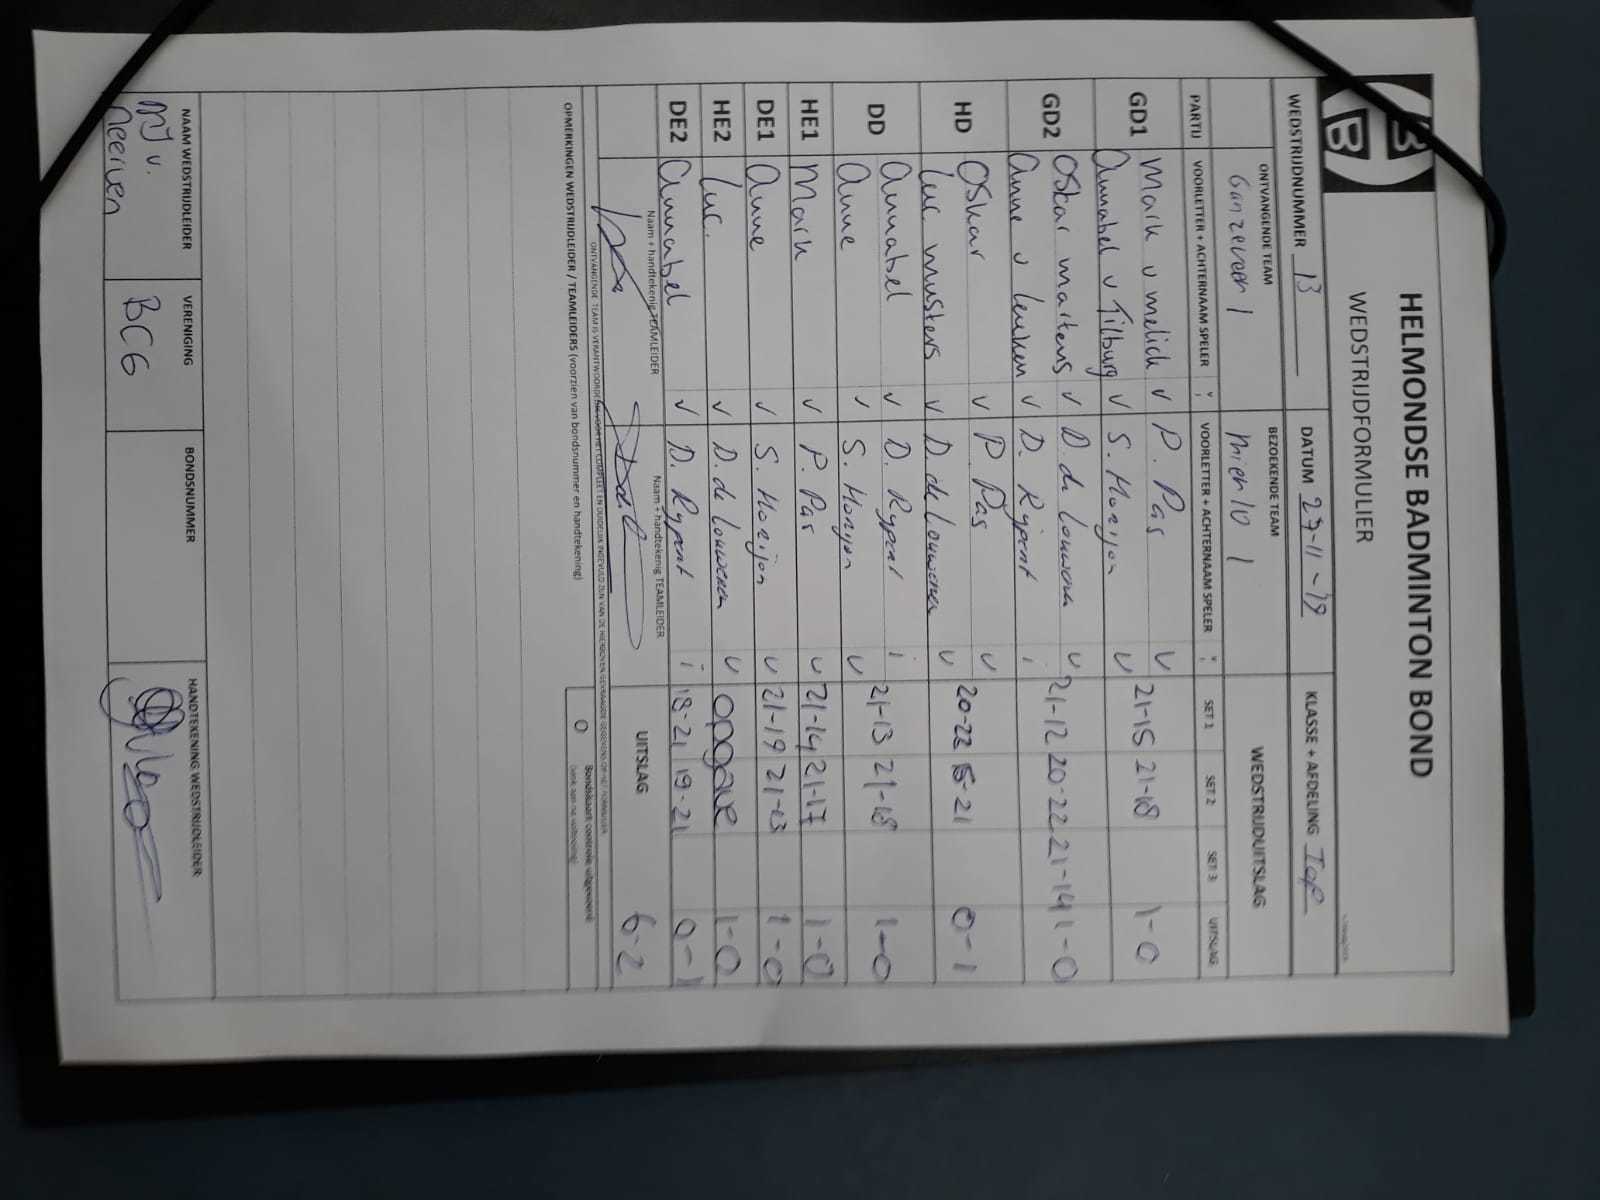 HELMONDSE BADMINTON BOND
WEDSTRIJDFORMULIER
B
B
WEDSTRIJDNUMMER 13 DATUM 29-11-19 KLASSE + AFDELING Top
ONTVANGENDE TEAM BEZOEKENDE TEAM WEDSTRIJDUITSLAG
Ganzeveen 1 Mierlo 1
PARTIJ VOORLETTER + ACHTERNAAM SPELER V VOORLETTER + ACHTERNAAM SPELER V SET 1 SET 2 SET 3 UITSLAG
GD1 Mark v Melick v P. Pas v 21-15 21-18 1-0
Annabel v Tilburg v S. Horijon v
GD2 Oskar Martens v D. de Louweren v 21-12 20-22 21-14 1-0
Anne v Leuken v D. Rijpert i
HD Oskar v P Pas v 20-22 15-21 0-1
Luc Musters v D. de Louweren v
DD Annabel v D. Rypert i 21-13 21-18 1-0
Anne v S. Horijon v
HE1 Mark v P. Pas v 21-14 21-17 1-0
DE1 Anne v S. Horijon v 21-19 21-13 1-0
HE2 Luc. v D. de Louweren v opgave 1-0
DE2 Annabel v D. Rypert i 18-21 19-21 0-1
Naam + handtekenig TEAMLEIDER Naam + handtekenig TEAMLEIDER UITSLAG 6-2
ONTVANGENDE TEAM IS VERANTWOORDELIJK VOOR HET COMPLEET EN DUIDELIJK INGEVULD ZIJN VAN DE HIERBOVEN GEVRAAGDE GEGEVENS OP HET FORMULIER
OPMERKINGEN WEDSTRIJDLEIDER / TEAMLEIDERS (voorzien van bondsnummer en handtekening) O Bondskaart controle uitgevoerd
NAAM WEDSTRIJDLEIDER VERENIGING BONDSNUMMER HANDTEKENING WEDSTRIJDLEIDER
MJ v. Neerven BCG